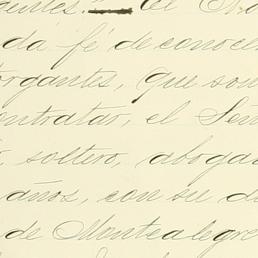 da fé de conoce
organtes, que son
ontratar, el Señ
soltero, aboga
años, con su d
de Montealegre